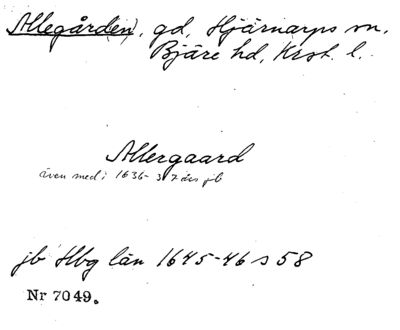 Allegård(en), gd, Hjärnarps sn,
Bjäre hd, Krst. l.
Allergaard
även med i 1636-37 års jb
jb Hbg län 1645-46 s 58
Nr 7049.